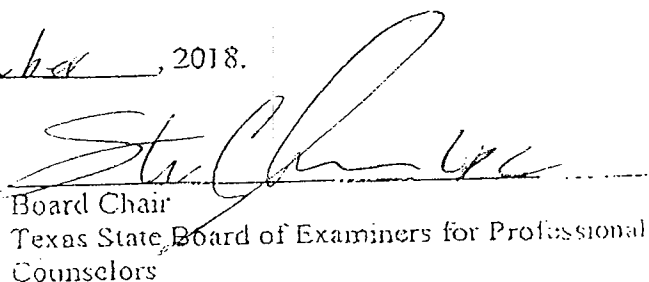 , 2018.
Board Chair
Texas State Board of Examiners for Professional
Counselors